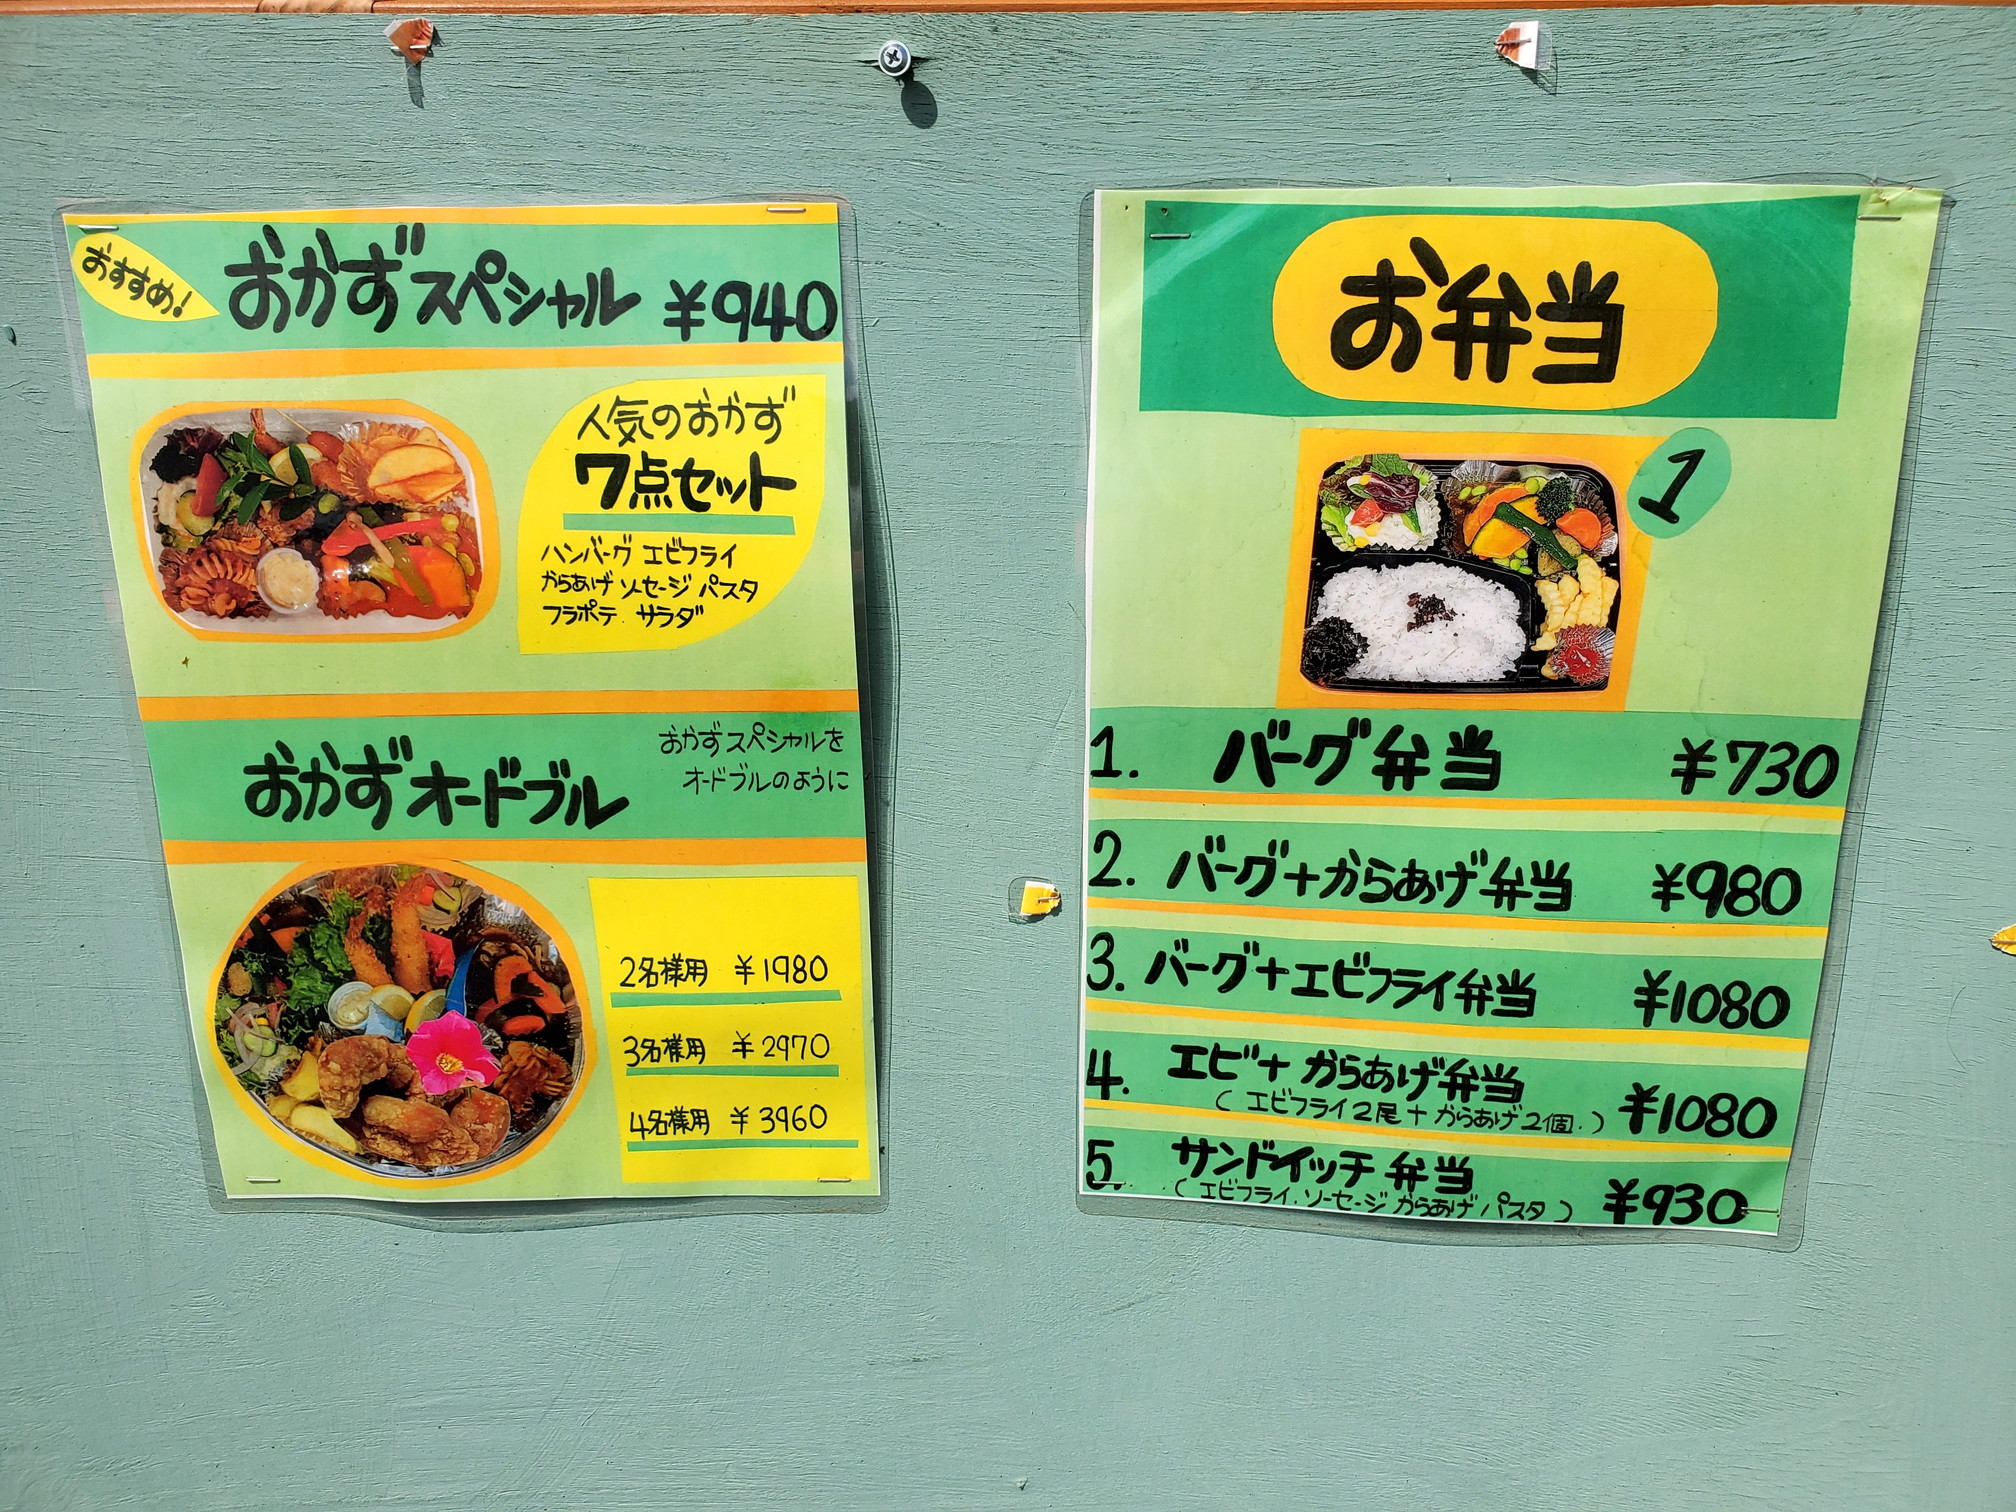 おすすめ!
おかずスペシャル ¥940
人気のおかず
7点セット
ハンバーグ エビフライ
からあげ ソーセージ パスタ
フラポテ サラダ
おかずオードブル
おかずスペシャルを
オードブルのように
2名様用 ¥1980
3名様用 ¥2970
4名様用 ¥3960
お弁当
1
1. バーグ弁当 ¥730
2. バーグ+からあげ弁当 ¥980
3. バーグ+エビフライ弁当 ¥1080
4. エビ+からあげ弁当 ¥1080
(エビフライ2尾+からあげ2個.)
5. サンドイッチ弁当 ¥930
(エビフライ.ソーセージ からあげ パスタ)